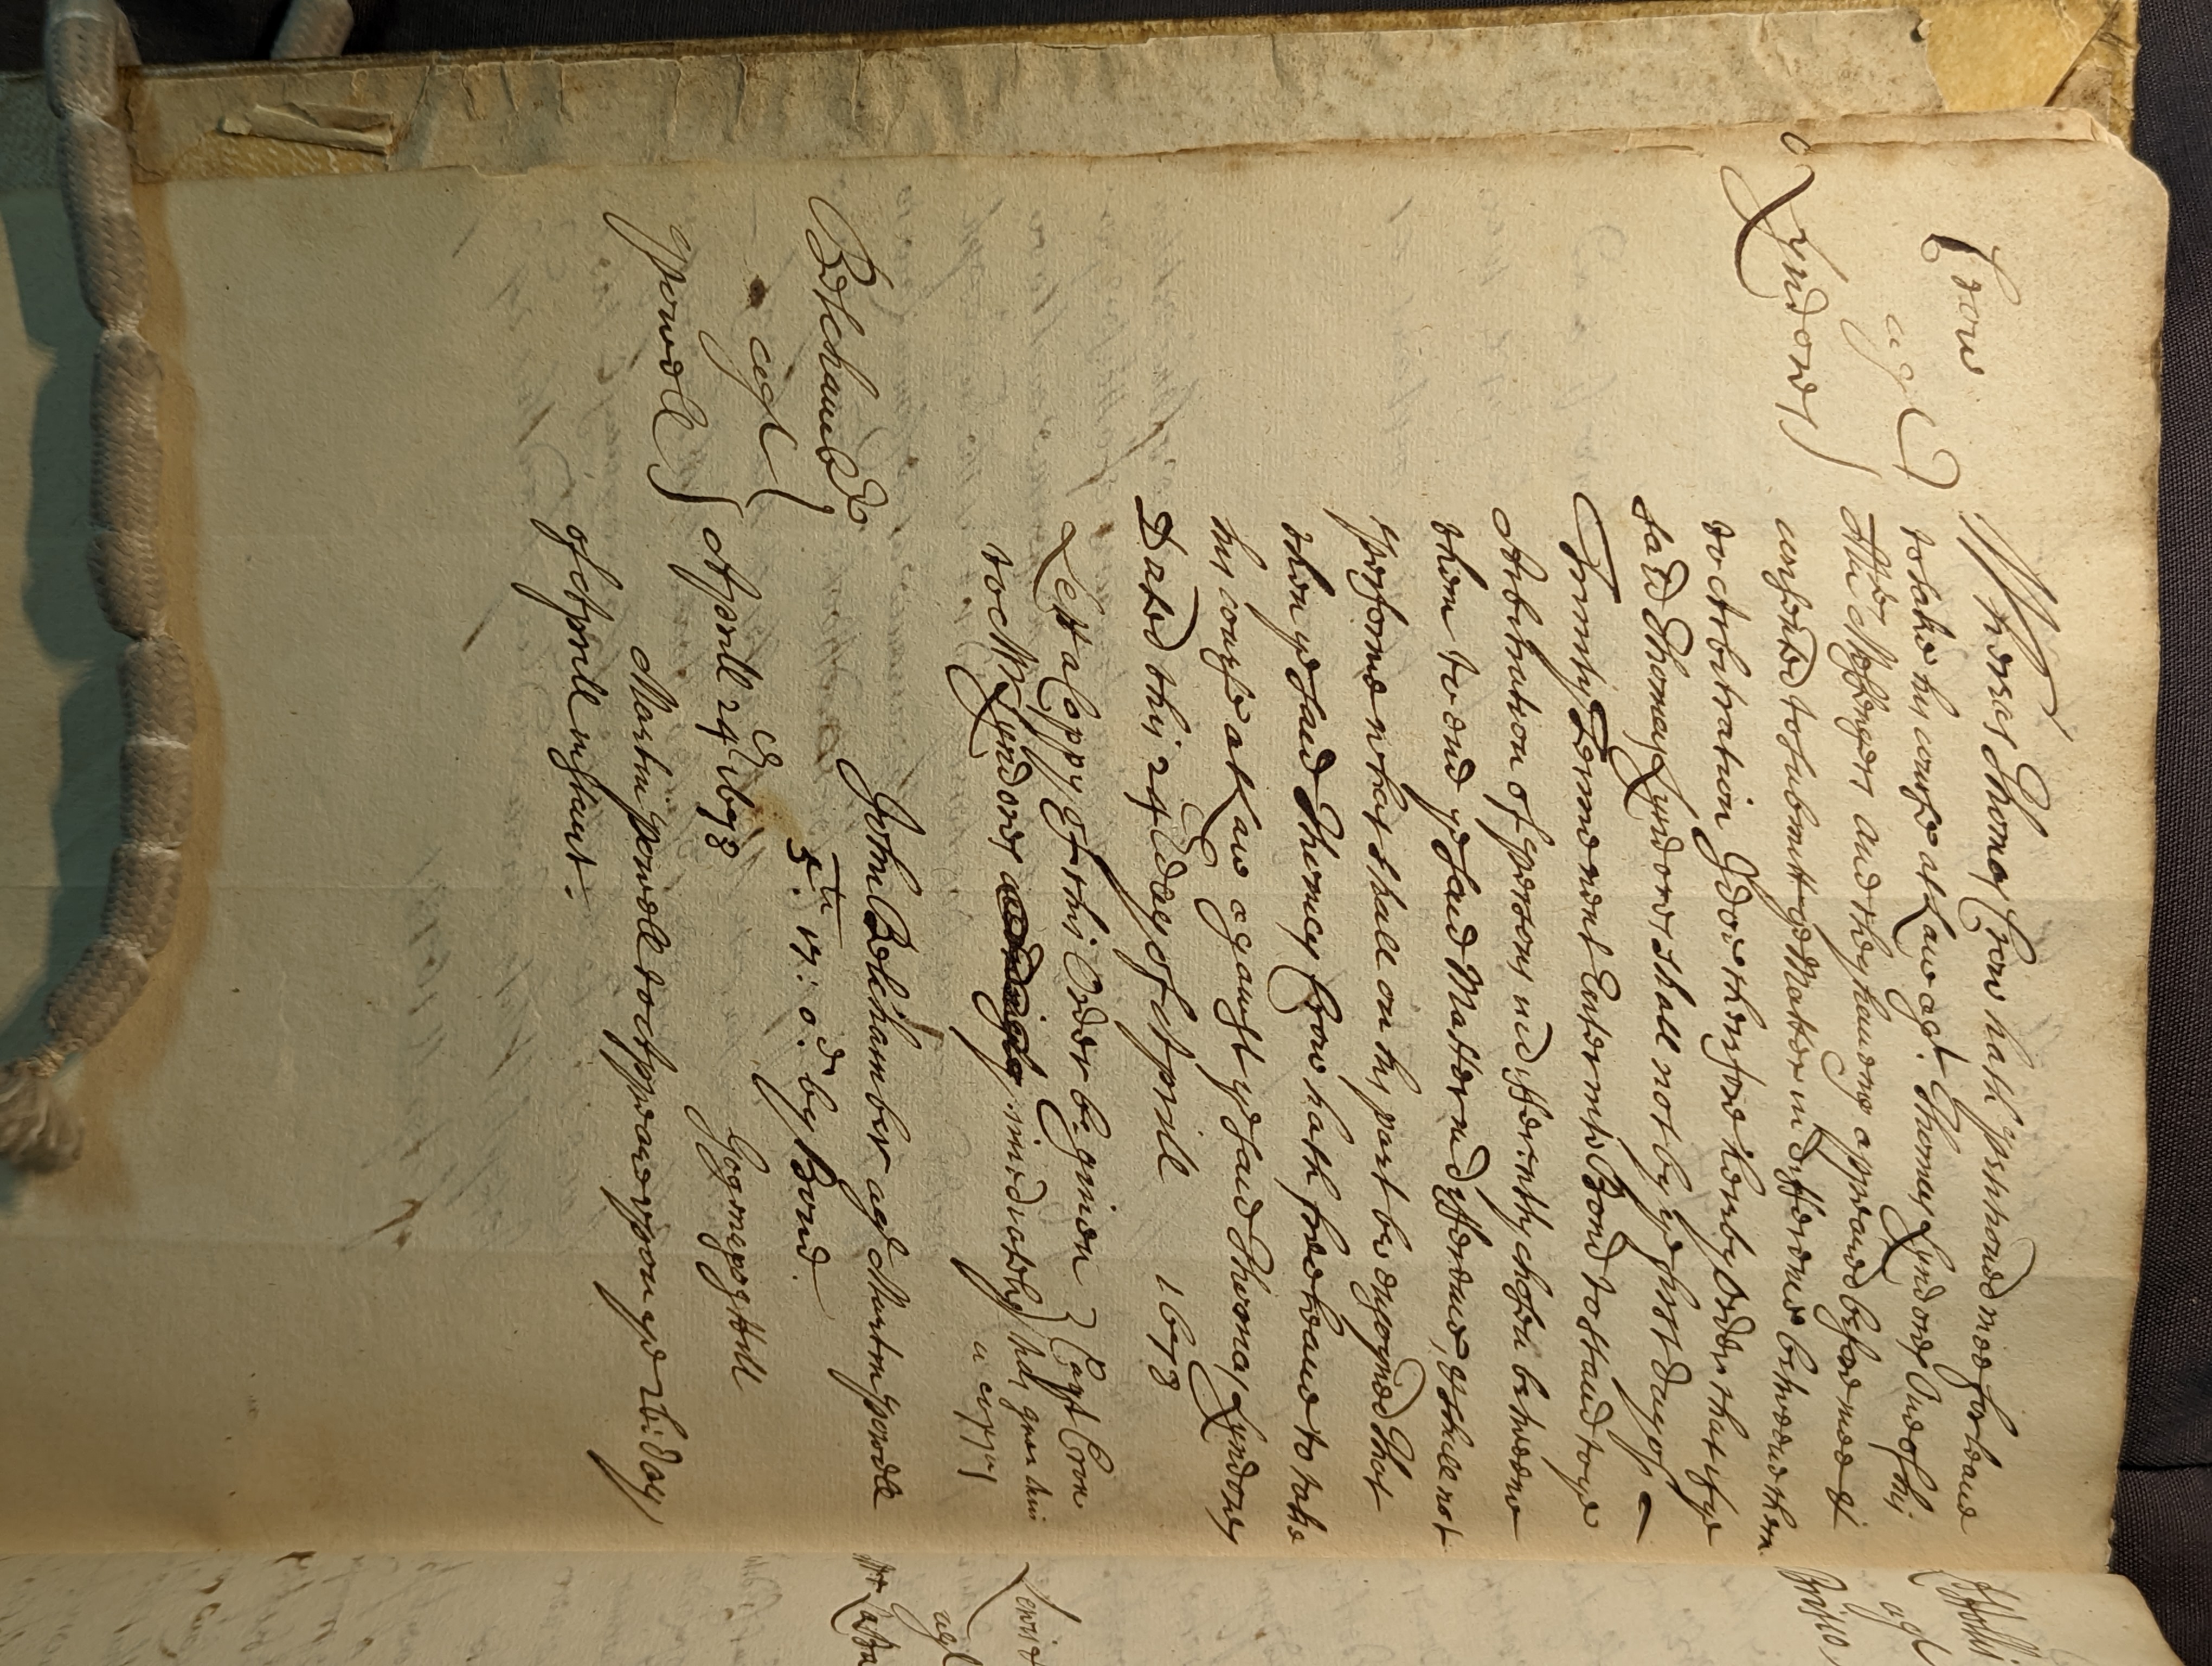 Crow
agt
Lyndores
Whereas Thomas Crow hath petitioned mee for leave
to take his course at Law agt. Thomas Lyndores One of his
Maties Messengers and they haveing appeared before mee &
consented to submitt ye Matter in difference betweene them
to Arbitration I doe therefore hereby Order that if ye
said Thomas Lyndores shall not by ye first day of
Trinity Terme next Enter into Bond to stand to ye
Arbitration of persons indifferently chosen betweene
them to end ye said Matter in difference, & shall not
performe what shall on his part be enjoyned That
then ye said Thomas Crow hath free leave to take
his course at Law against ye said Thomas Lyndores
Dated this 24th day of Aprill 1678
Lett a Coppy of this Order be given
to Mr Lyndores imediately
Capt Crow
hath given him
a coppy
Belchamber
agt
Powell
John Belchamber agt Martin Powell
5li 17: 0d by Bond.
Aprill 24th 1678
Martin Powell to Appeare upon ye 26th day
of Aprill instant.
agt
agt